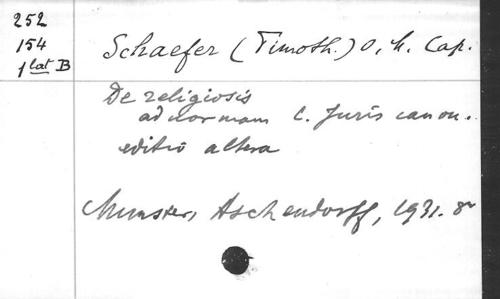 252
154
1 lat B
Schaefer (Timoth.) O. M. Cap.
De religiosis
ad normam C. Juris canon.
editio altera
Munster, Aschendorff, 1931. 8º